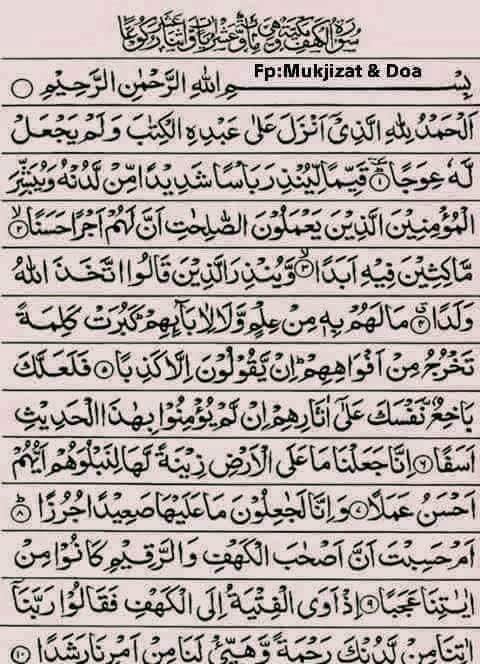 سُوْرَةُ الْكَهْفِ مَكِّيَّةٌ وَّهِيَ مِائَةٌ وَّعَشْرُ اٰيَاتٍ وَّاثْنَا عَشَرَ رُكُوْعًا
Fp:Mukjizat & Doa
بِسْمِ اللّٰهِ الرَّحْمٰنِ الرَّحِيْمِ
اَلْحَمْدُ لِلّٰهِ الَّذِيْٓ اَنْزَلَ عَلٰى عَبْدِهِ الْكِتٰبَ وَلَمْ يَجْعَلْ
لَّهٗ عِوَجًا ۱ قَيِّمًا لِّيُنْذِرَ بَاْسًا شَدِيْدًا مِّنْ لَّدُنْهُ وَيُبَشِّرَ
الْمُؤْمِنِيْنَ الَّذِيْنَ يَعْمَلُوْنَ الصّٰلِحٰتِ اَنَّ لَهُمْ اَجْرًا حَسَنًا ۲
مَّاكِثِيْنَ فِيْهِ اَبَدًا ۳ وَّيُنْذِرَ الَّذِيْنَ قَالُوا اتَّخَذَ اللّٰهُ
وَلَدًا ۴ مَا لَهُمْ بِهٖ مِنْ عِلْمٍ وَّلَا لِاٰبَآئِهِمْ ؕ كَبُرَتْ كَلِمَةً
تَخْرُجُ مِنْ اَفْوَاهِهِمْ ؕ اِنْ يَّقُوْلُوْنَ اِلَّا كَذِبًا ۵ فَلَعَلَّكَ
بَاخِعٌ نَّفْسَكَ عَلٰٓى اٰثَارِهِمْ اِنْ لَّمْ يُؤْمِنُوْا بِهٰذَا الْحَدِيْثِ
اَسَفًا ۶ اِنَّا جَعَلْنَا مَا عَلَى الْاَرْضِ زِيْنَةً لَّهَا لِنَبْلُوَهُمْ اَيُّهُمْ
اَحْسَنُ عَمَلًا ۷ وَاِنَّا لَجٰعِلُوْنَ مَا عَلَيْهَا صَعِيْدًا جُرُزًا ۸
اَمْ حَسِبْتَ اَنَّ اَصْحٰبَ الْكَهْفِ وَالرَّقِيْمِ كَانُوْا مِنْ
اٰيٰتِنَا عَجَبًا ۹ اِذْ اَوَى الْفِتْيَةُ اِلَى الْكَهْفِ فَقَالُوْا رَبَّنَآ
اٰتِنَا مِنْ لَّدُنْكَ رَحْمَةً وَّهَيِّئْ لَنَا مِنْ اَمْرِنَا رَشَدًا ۱۰